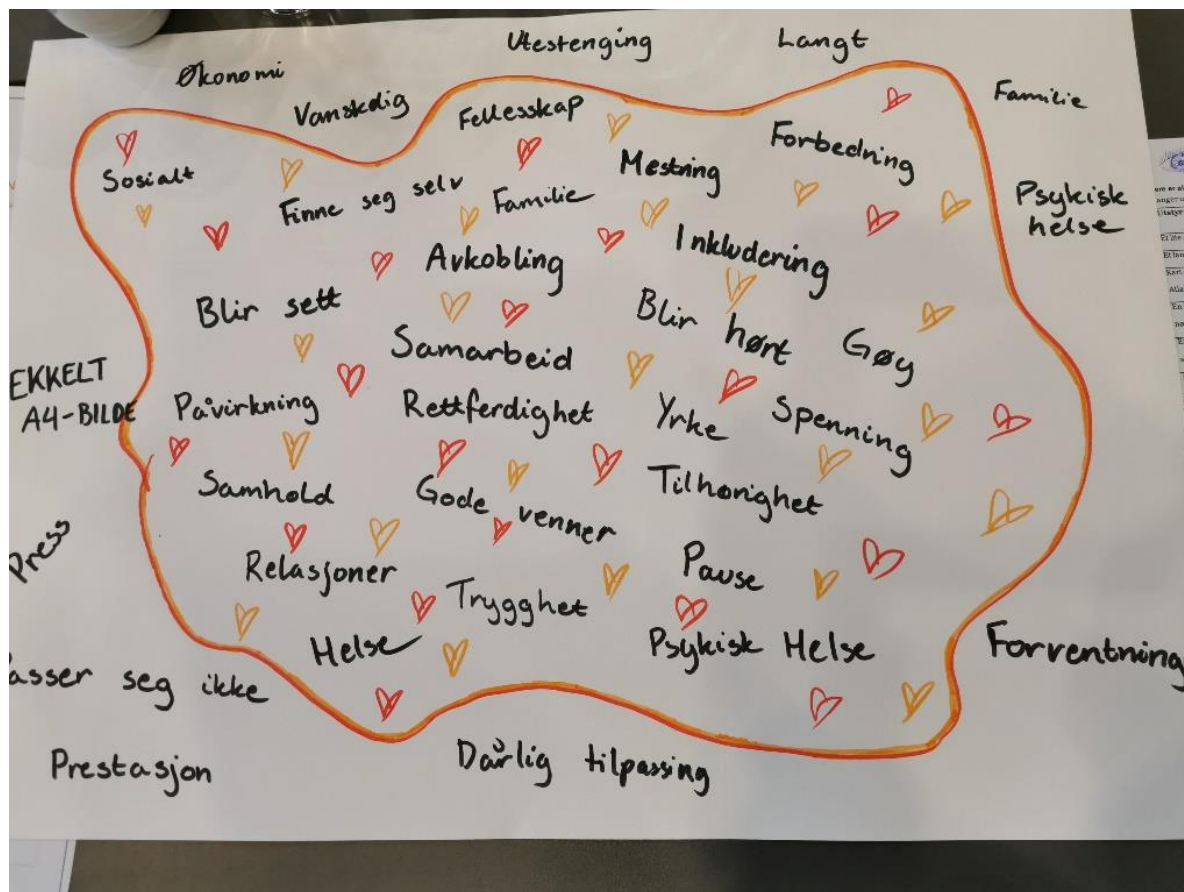 Utestenging
Langt
Økonomi
Familie
Vanskelig
Fellesskap
Forbedring
Mestring
Sosialt
Finne seg selv
Familie
Psykisk
helse
Inkludering
Avkobling
Blir sett
Blir hørt
Gøy
Samarbeid
EKKELT
A4-BILDE
Påvirkning
Rettferdighet
Yrke
Spenning
Samhold
Gode venner
Tilhørighet
Press
Relasjoner
Trygghet
Pause
Helse
Psykisk Helse
Forventning
asser seg ikke
Prestasjon
Dårlig tilpassing